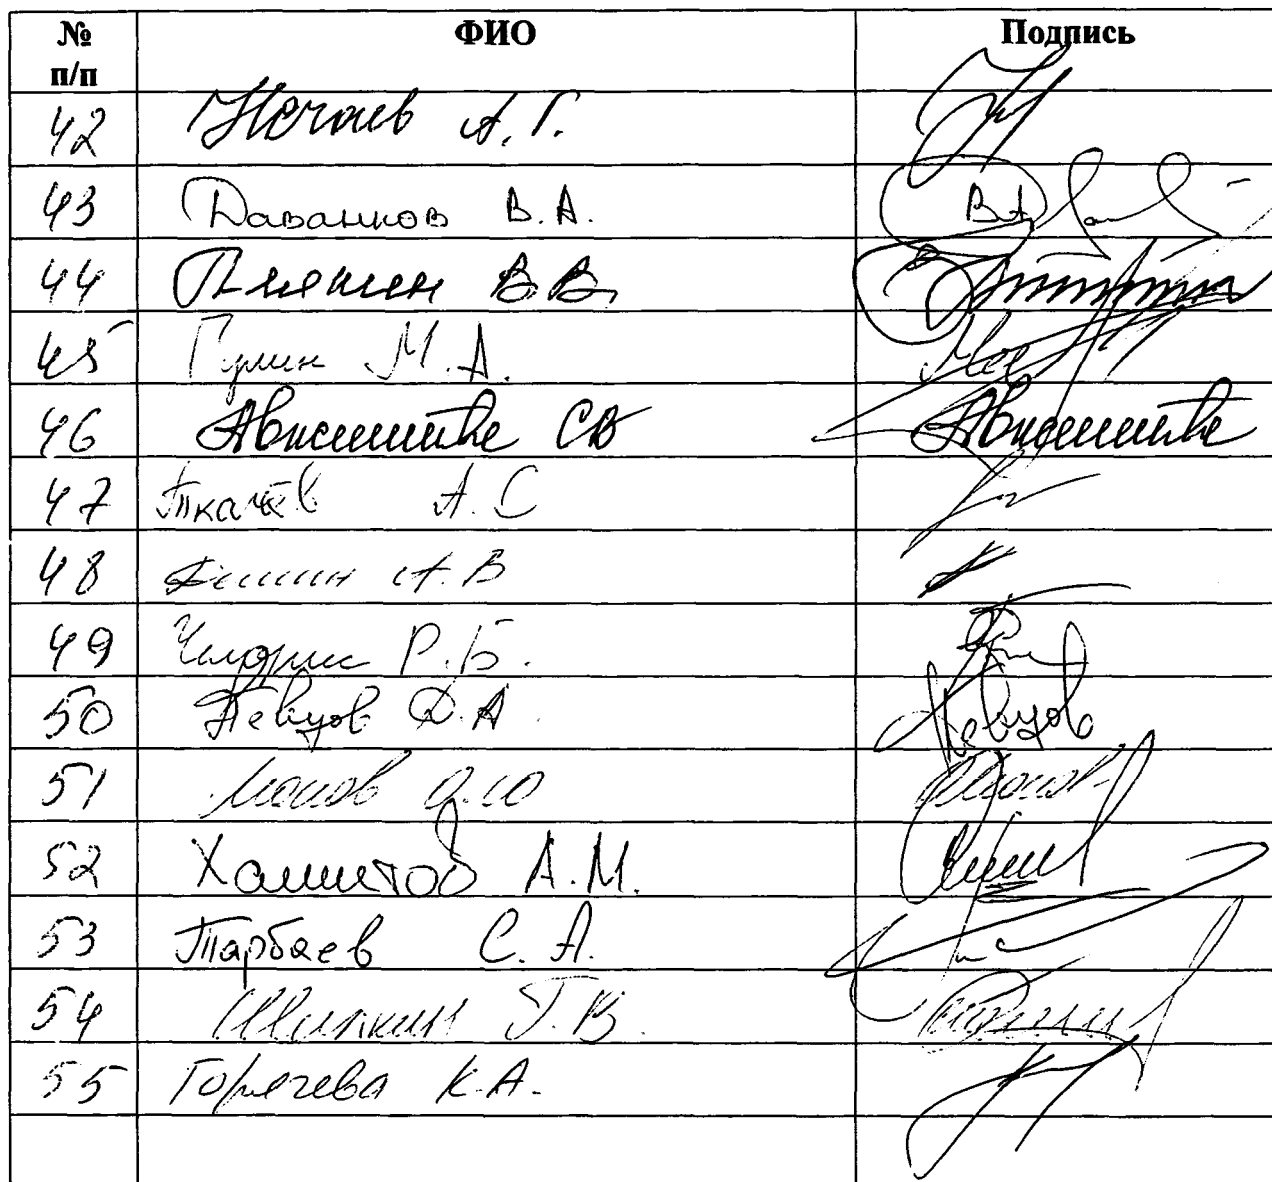 № п/п ФИО Подпись
42 Нечаев А.Г.
43 Даванков В.А.
44 Плякин В.В.
45 Гулин М.А.
46 Авксентьева СВ Авксентьева
47 Ткачёв А.С
48 Дёмин А.В
49 Чемерис Р.Б.
50 Певцов Д.А. Певцов
51 О.Ю
52 Хамитов А.М.
53 Тарбаев С.А.
54 Шилкин Г.В.
55 Горячева К.А.